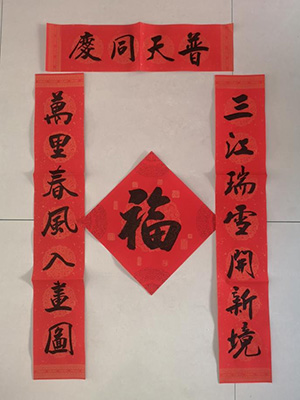 普天同慶
三江瑞雪開新境
萬里春風入畫圖
福